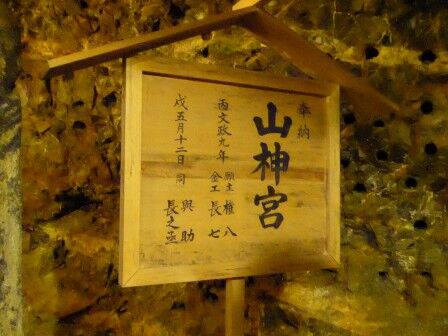 奉納
山神宮
丙文政九年 願主 權八
金工 長七
戌五月十二日 同 與助
長之丞